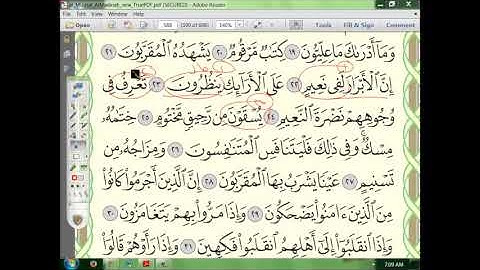 Al_Muasar_AlMadinah_new_TruePDF.pdf (SECURED) - Adobe Reader
Tools
Fill & Sign
Comment
وَمَآ أَدْرَىٰكَ مَا عِلِّيُّونَ ١٩ كِتَٰبٌ مَّرْقُومٌ ٢٠ يَشْهَدُهُ ٱلْمُقَرَّبُونَ ٢١
إِنَّ ٱلْأَبْرَارَ لَفِى نَعِيمٍ ٢٢ عَلَى ٱلْأَرَآئِكِ يَنظُرُونَ ٢٣ تَعْرِفُ فِى
وُجُوهِهِمْ نَضْرَةَ ٱلنَّعِيمِ ٢٤ يُسْقَوْنَ مِن رَّحِيقٍ مَّخْتُومٍ ٢٥ خِتَٰمُهُۥ
مِسْكٌ وَفِى ذَٰلِكَ فَلْيَتَنَافَسِ ٱلْمُتَنَٰفِسُونَ ٢٦ وَمِزَاجُهُۥ مِن
تَسْنِيمٍ ٢٧ عَيْنًا يَشْرَبُ بِهَا ٱلْمُقَرَّبُونَ ٢٨ إِنَّ ٱلَّذِينَ أَجْرَمُوا۟ كَانُوا۟
مِنَ ٱلَّذِينَ ءَامَنُوا۟ يَضْحَكُونَ ٢٩ وَإِذَا مَرُّوا۟ بِهِمْ يَتَغَامَزُونَ ٣٠
وَإِذَا ٱنقَلَبُوٓا۟ إِلَىٰٓ أَهْلِهِمُ ٱنقَلَبُوا۟ فَكِهِينَ ٣١ وَإِذَا رَأَوْهُمْ قَالُوٓا۟
7:09 AM